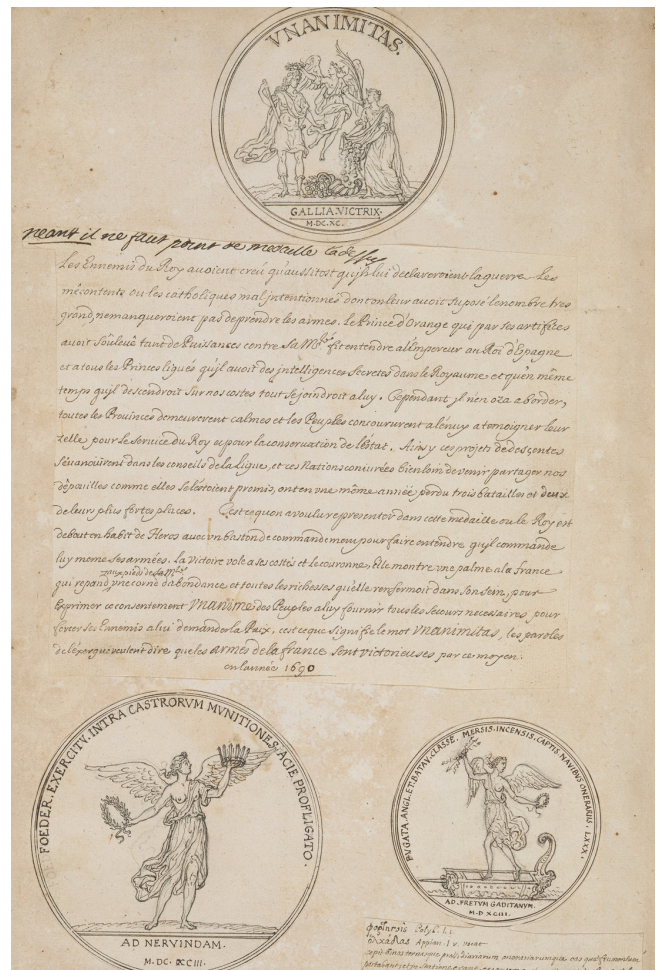 VNANIMITAS.
GALLIA·VICTRIX·
M·DC·XC·
neant il ne faut point de medaille la dessus
Les Ennemis du Roy avoient creu qu'aussitost qu'ils lui declareroient la guerre Les
mécontents ou les catholiques mal intentionnes dont on leur avoit suposé le nombre tres
grand, ne manqueroient pas de prendre les armes. le Prince d'Orange qui par ses artifices
avoit souleué tant de Puissances contre Sa M.té fit entendre a l'Empereur au Roi d'Espagne
et a tous les Princes ligués qu'jl avoit des intelligences secretes dans le Royaume et qu'en même
temps qu'jl descendroit sur nos costes tout se joindroit a luy. Cependant jl n'en oza aborder,
toutes les Provinces demeurerent calmes et les Peuples concoururent a l'enuy a temoigner leur
zelle pour le service du Roy et pour la conservation de l'Etat. Ainsy ces projets de descentes
s'éuanoüirent dans les conseils de la Ligue, et ces Nations coniurées bien loin de venir partager nos
dépouilles comme elles se l'estoient promis, ont en vne même année perdu trois batailles et deux
de leurs plus fortes places. C'est ce qu'on a voulu representer dans cette medaille ou le Roy est
debout en habit de Heros avec vn baston de commandement pour faire entendre qu'jl commande
luy meme ses armées. la Victoire vole a ses costés et le couronne, Elle montre vne palme a la France
qui repand aux pieds de sa M.té vne corne d'abondance et toutes les richesses qu'elle renfermoit dans son sein, pour
Exprimer ce consentement VNANIME des Peuples a luy fournir tous les secours necessaires pour
forcer ses Ennemis a lui demander la Paix, c'est ce que signifie le mot VNANIMITAS, les paroles
de l'éxergue veulent dire que les ARMES de la france sont victorieuses par ce moyen.
en l'année 1690
FOEDER. EXERCITV. INTRA CASTRORVM MVNITIONES. ACIE PROFLIGATO.
AD NERVINDAM.
M·DC·XCIII·
FVGATA·ANGL·ET·BATAV·CLASSE, MERSIS·INCENSIS, CAPTIS NAVIBVS ONERARIIS·LXXX·
AD·FRETVM GADITANVM.
M·D XCIII·
Appian. l. v.